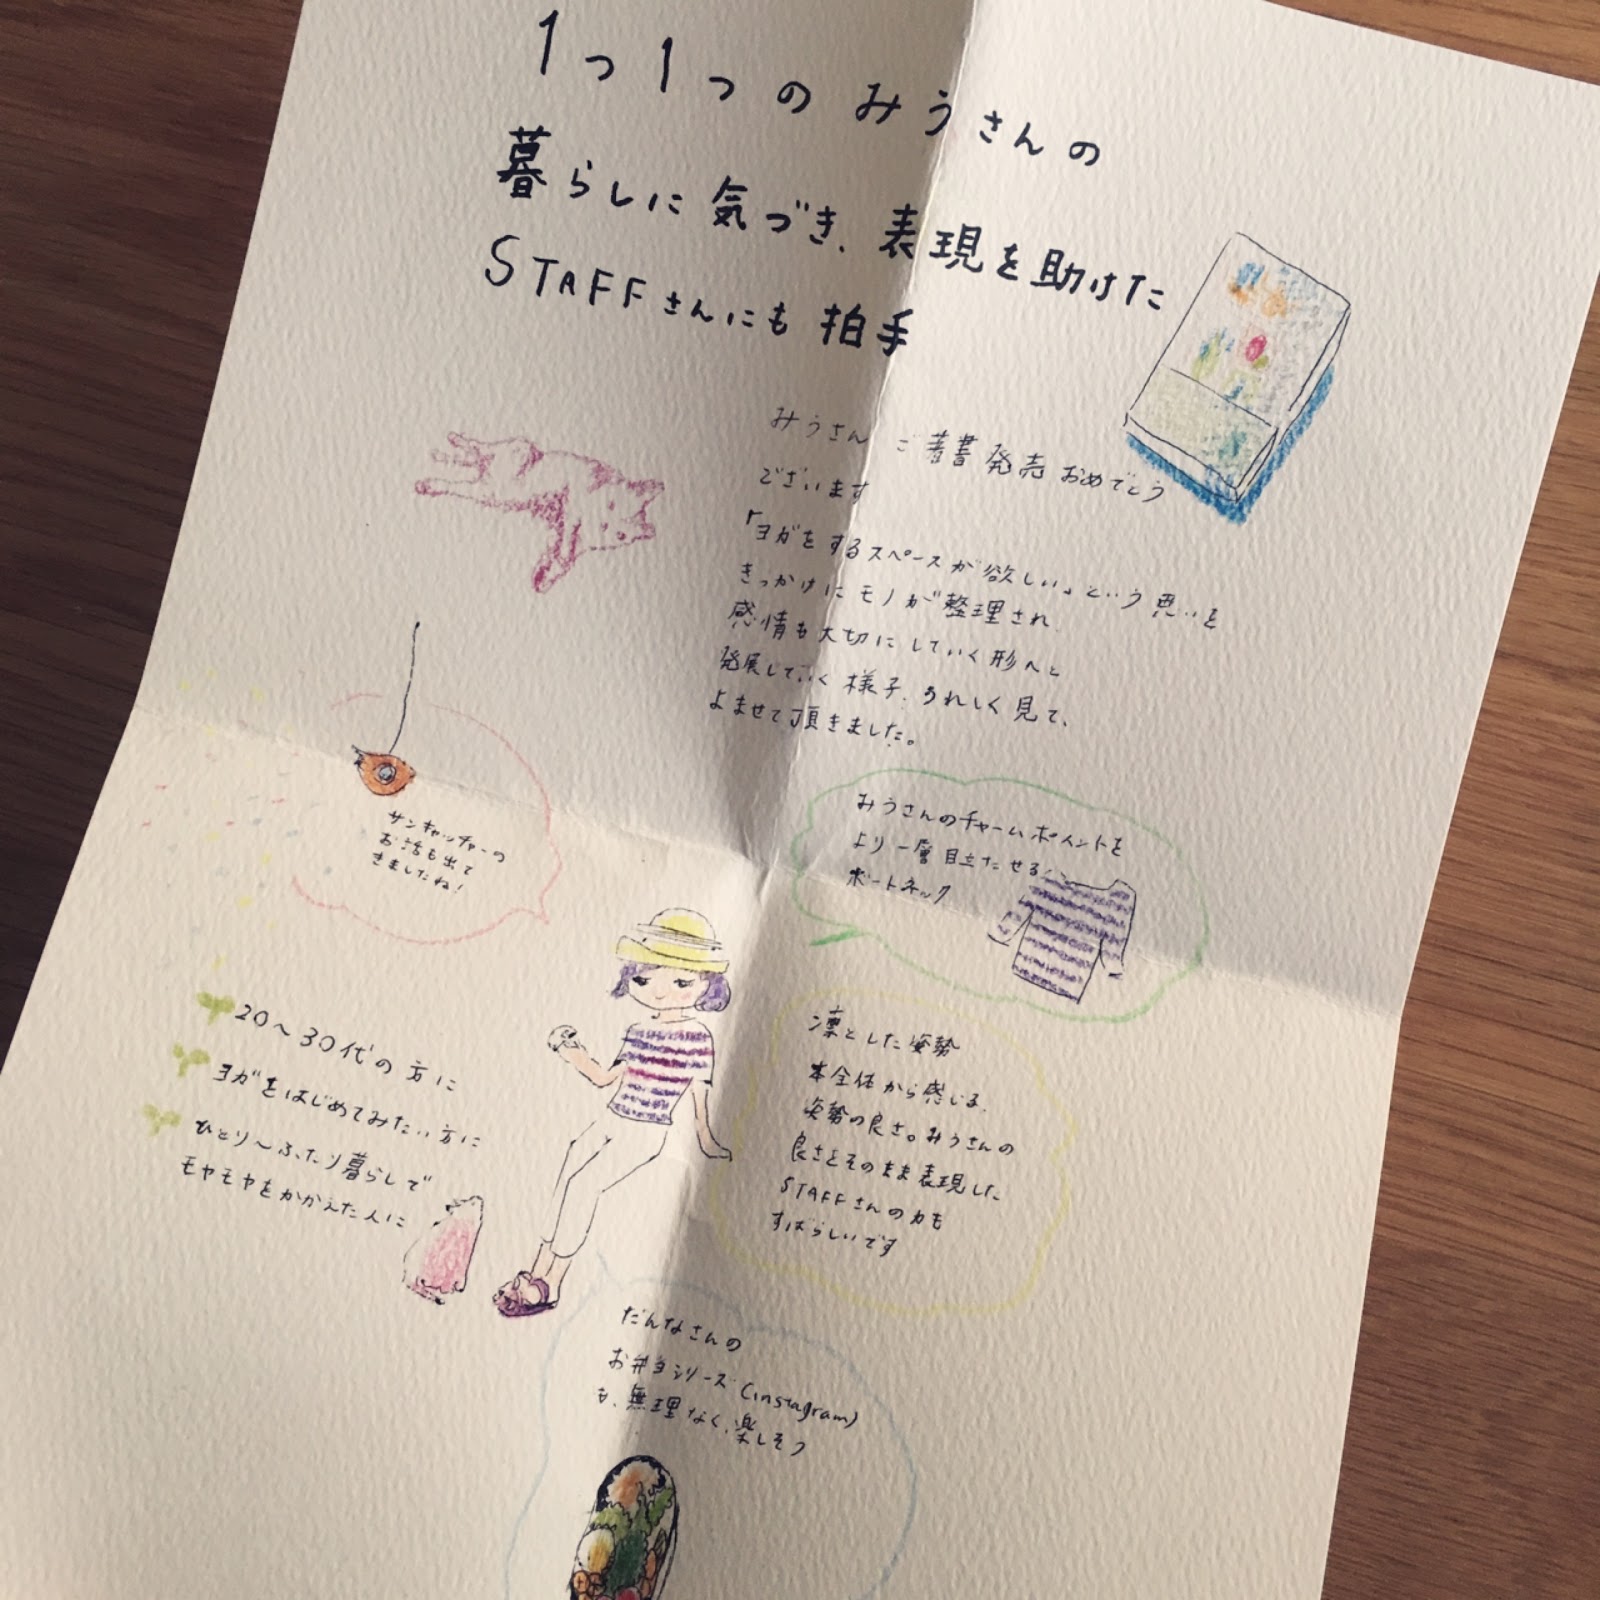 1つ1つのみうさんの
暮らしに気づき、表現を助けた
STAFFさんにも拍手
みうさん ご著書発売おめでとう
ございます
「ヨガをするスペースが欲しい」という思いを
きっかけにモノが整理され、
感情も大切にしていく形へと
発展していく様子、うれしく見て、
よませて頂きました。
サンキャッチャーの
お話も出て
きましたね!
みうさんのチャームポイントを
より一層目立たせる
ボートネック
凛とした姿勢
本全体から感じる、
姿勢の良さ。みうさんの
良さをそのまま表現した
STAFFさんの力も
すばらしいです
20〜30代の方に
ヨガをはじめてみたい方に
ひとり〜ふたり暮らしで
モヤモヤをかかえた人に
だんなさんの
お弁当シリーズ(instagram)
も、無理なく、楽しそう